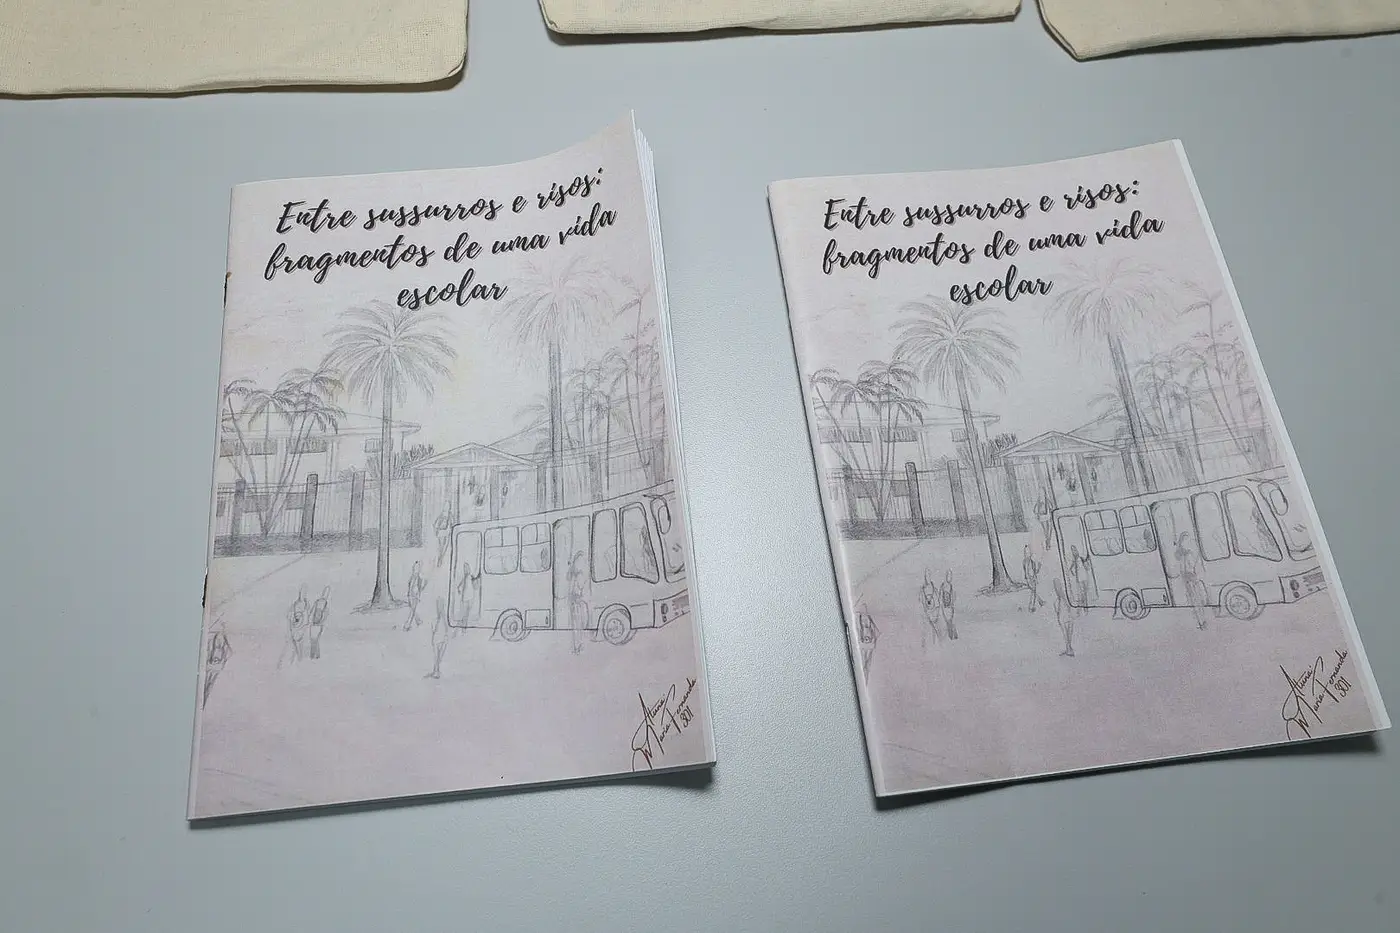 Entre sussurros e risos:
fragmentos de uma vida
escolar
Maria Fernanda
301
Entre sussurros e risos:
fragmentos de uma vida
escolar
Maria Fernanda
301